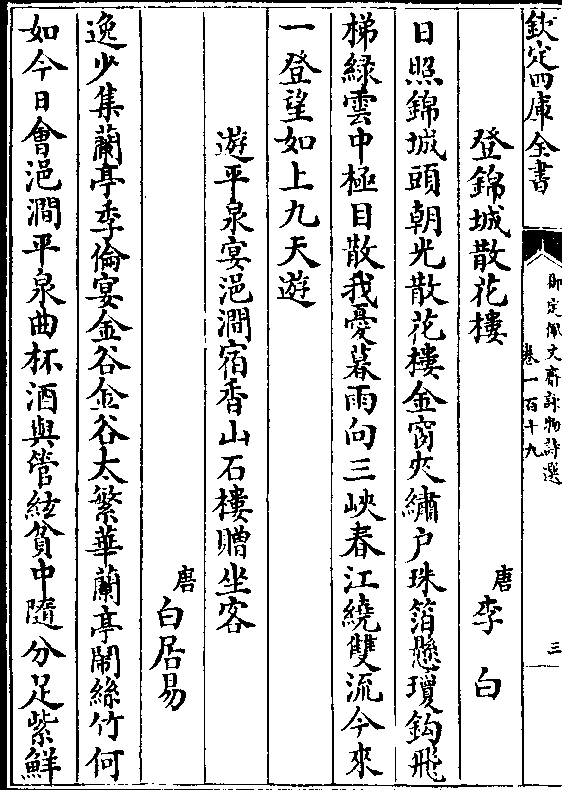 欽定四庫全書
御定佩文齋詠物詩選
卷一百十九
三
登錦城散花樓
唐 李白
日照錦城頭朝光散花樓金窗夾繡戶珠箔懸瓊鈎飛
梯綠雲中極目散我憂暮雨向三峽春江繞雙流今來
一登望如上九天遊
遊平泉宴浥澗宿香山石樓贈坐客
唐 白居易
逸少集蘭亭季倫宴金谷金谷太繁華蘭亭闹絲竹何
如今日會浥澗平泉曲杯酒與管絃貧中隨分足紫鮮